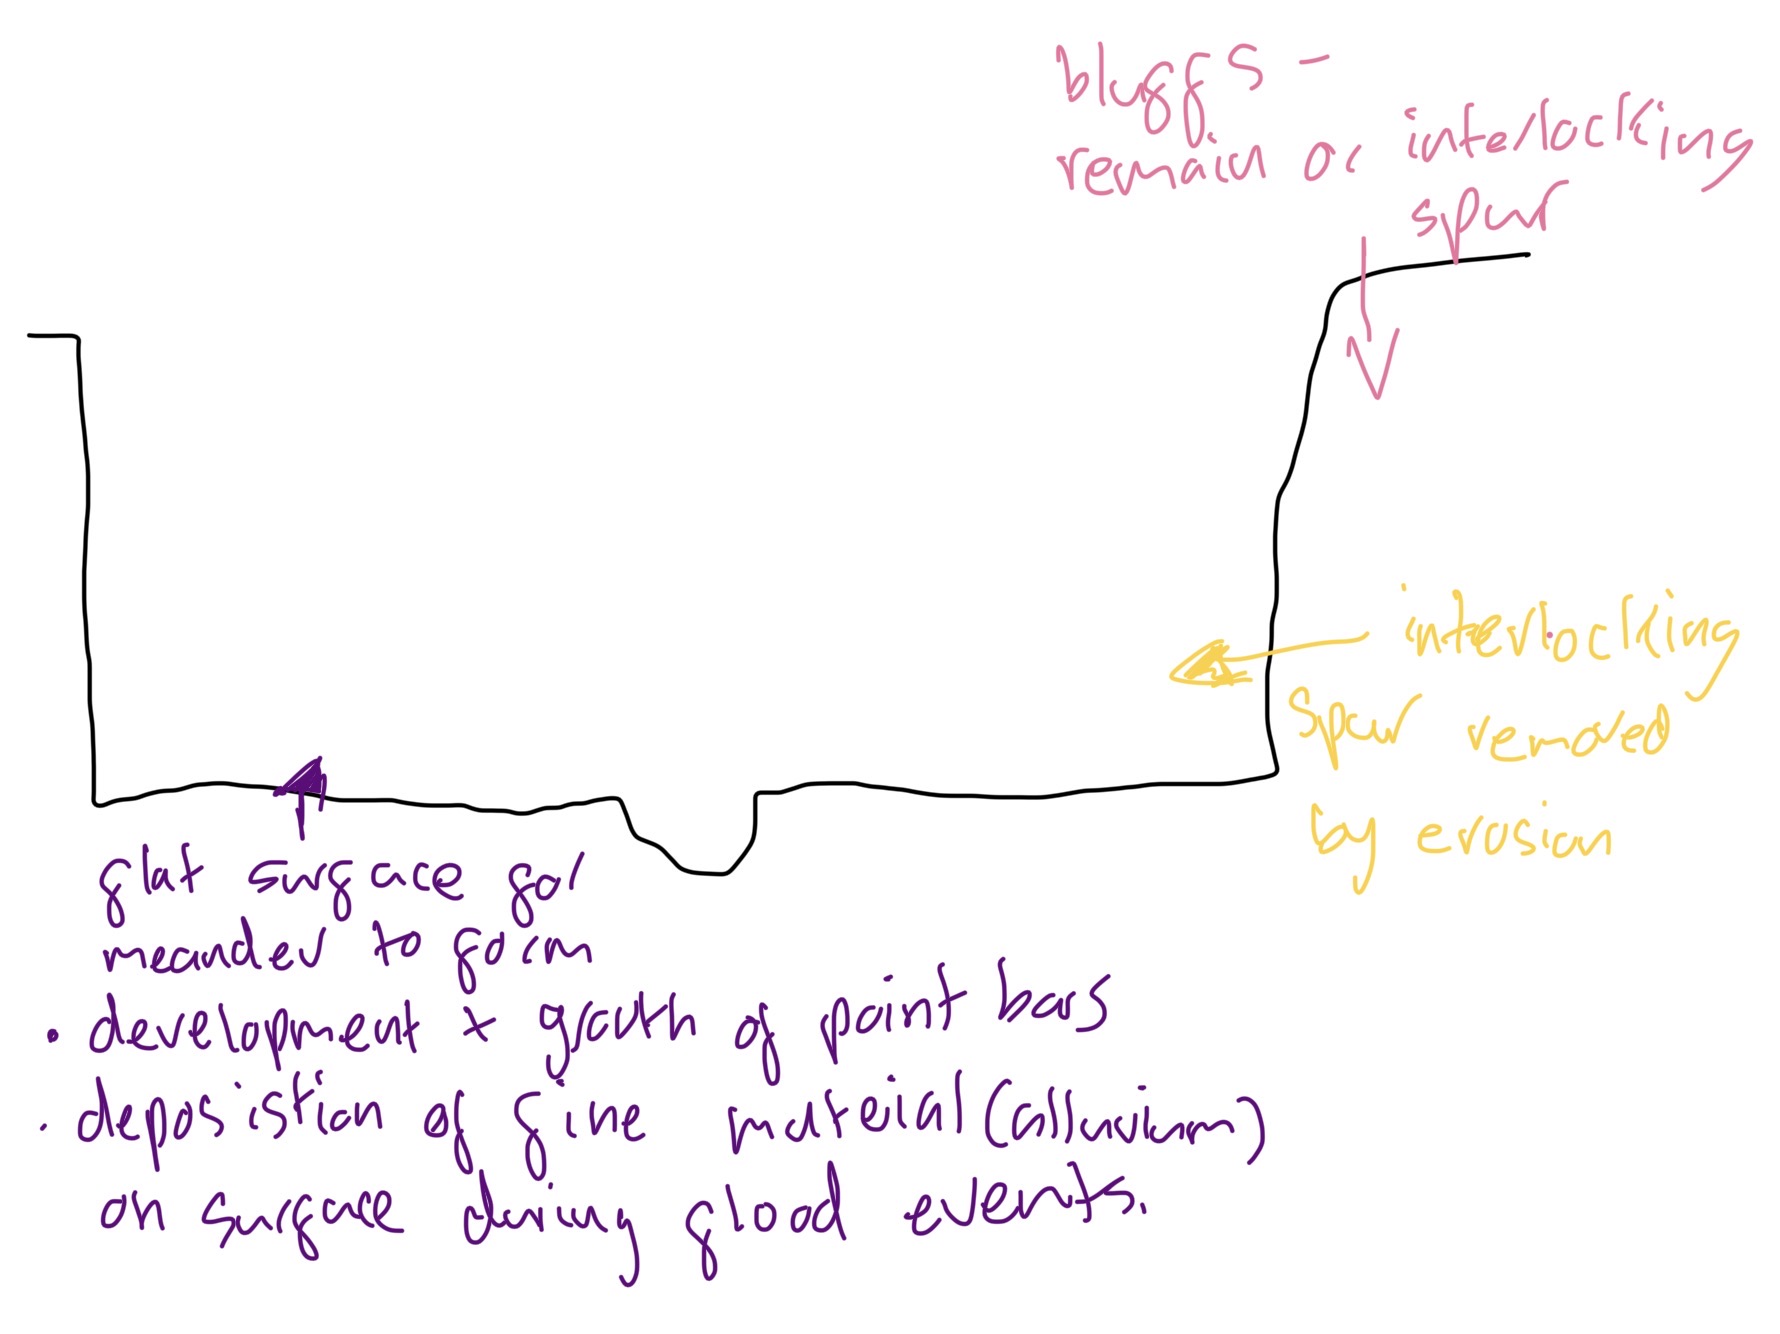 bluffs -
remain of interlocking
spur
interlocking
spur removed
by erosion
flat surface for
meander to form
• development + growth of point bars
• deposistion of fine material (alluvium)
on surface during flood events.